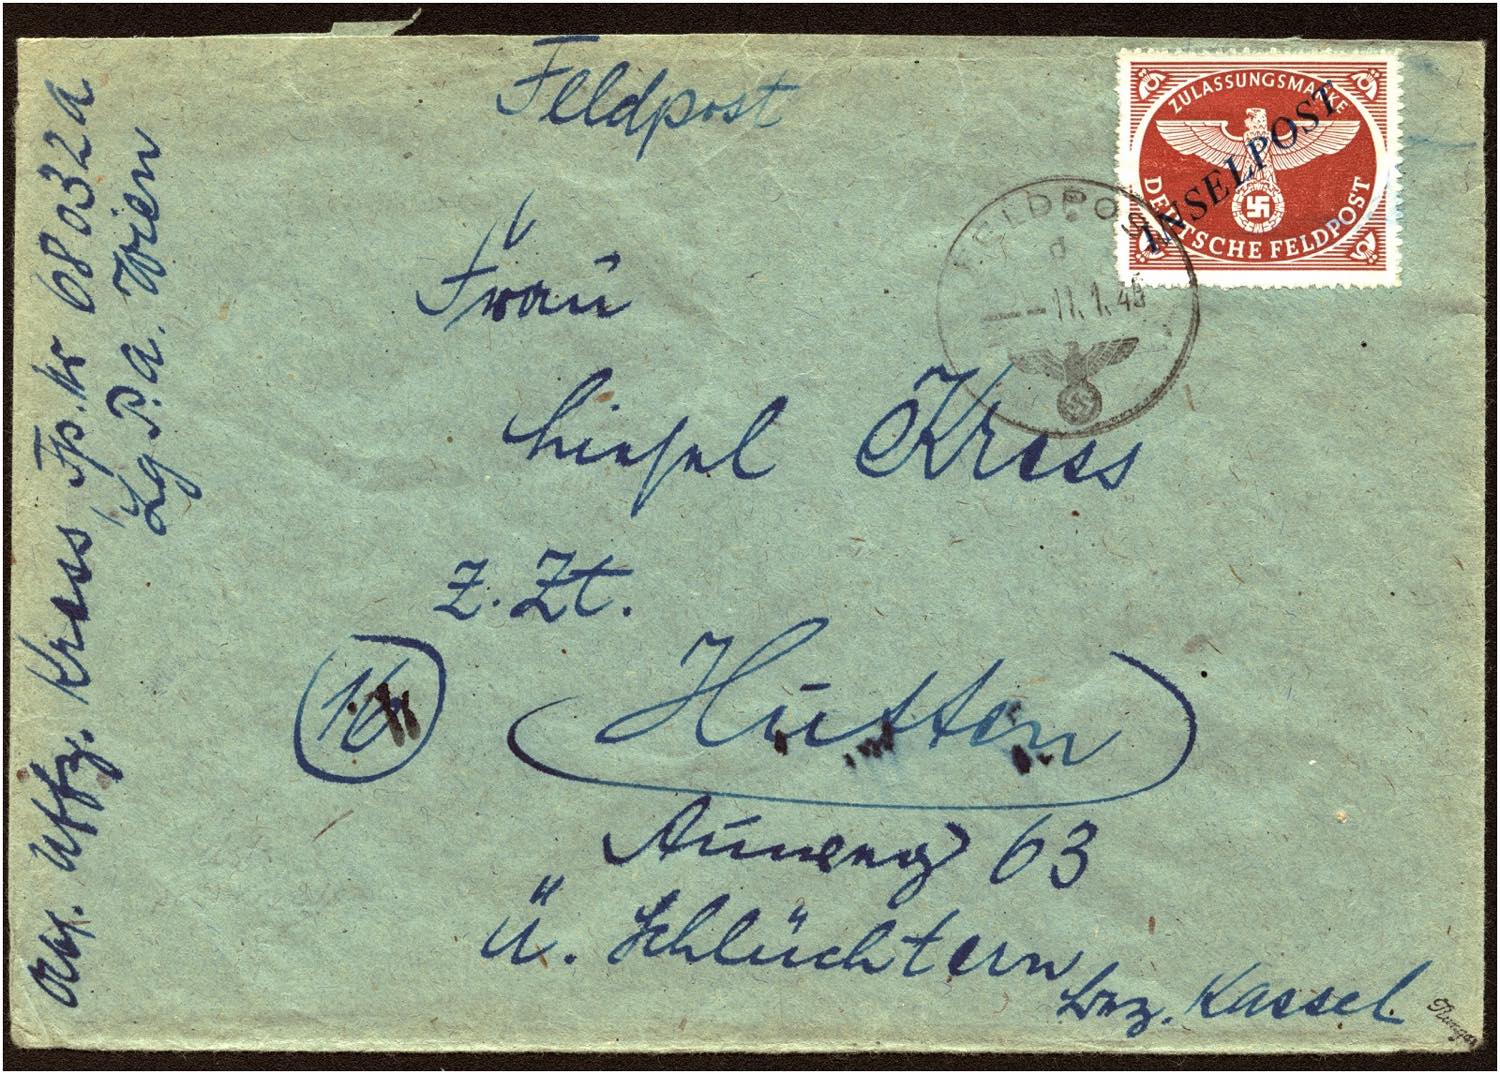 Feldpost
ZULASSUNGSMARKE
INSELPOST
DEUTSCHE FELDPOST
FELDPOST
d
--11.1.45
Frau
Liesel Kress
z. Zt.
16
Hütten
Auweg 63
Ü. Schlüchtern
Bez. Kassel
Abs. Uffz. Kress Fp. Nr 68032A
Lg. P. a. Wien